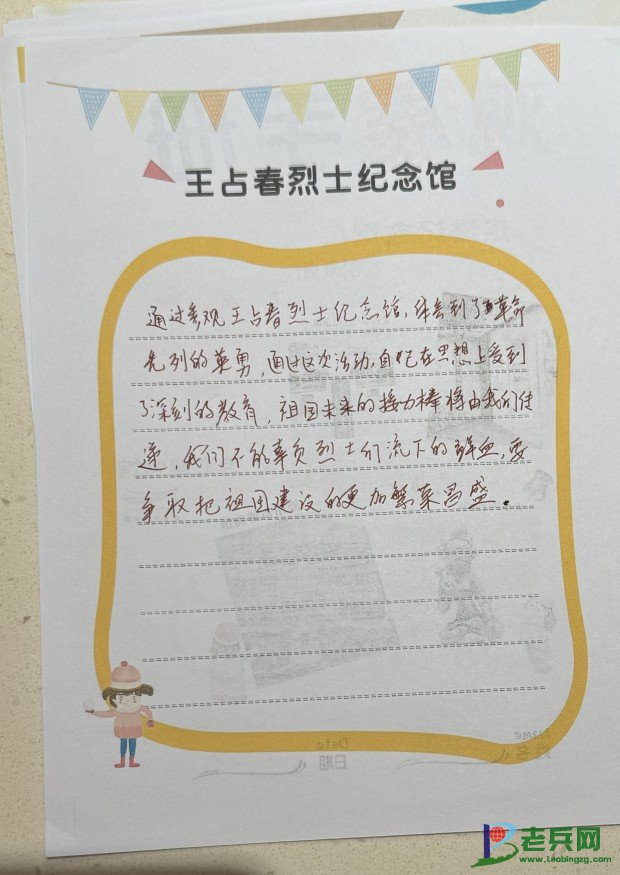 王占春烈士纪念馆
通过参观王占春烈士纪念馆,体会到了革命
先列的英勇,通过这次活动,自己在思想上受到
了深刻的教育,祖国未来的接力棒将由我们传
递,我们不能辜负烈士们流下的鲜血,要
争取把祖国建设的更加繁荣昌盛。
Name
姓名
Date
日期
老兵网
www.laobingzg.com